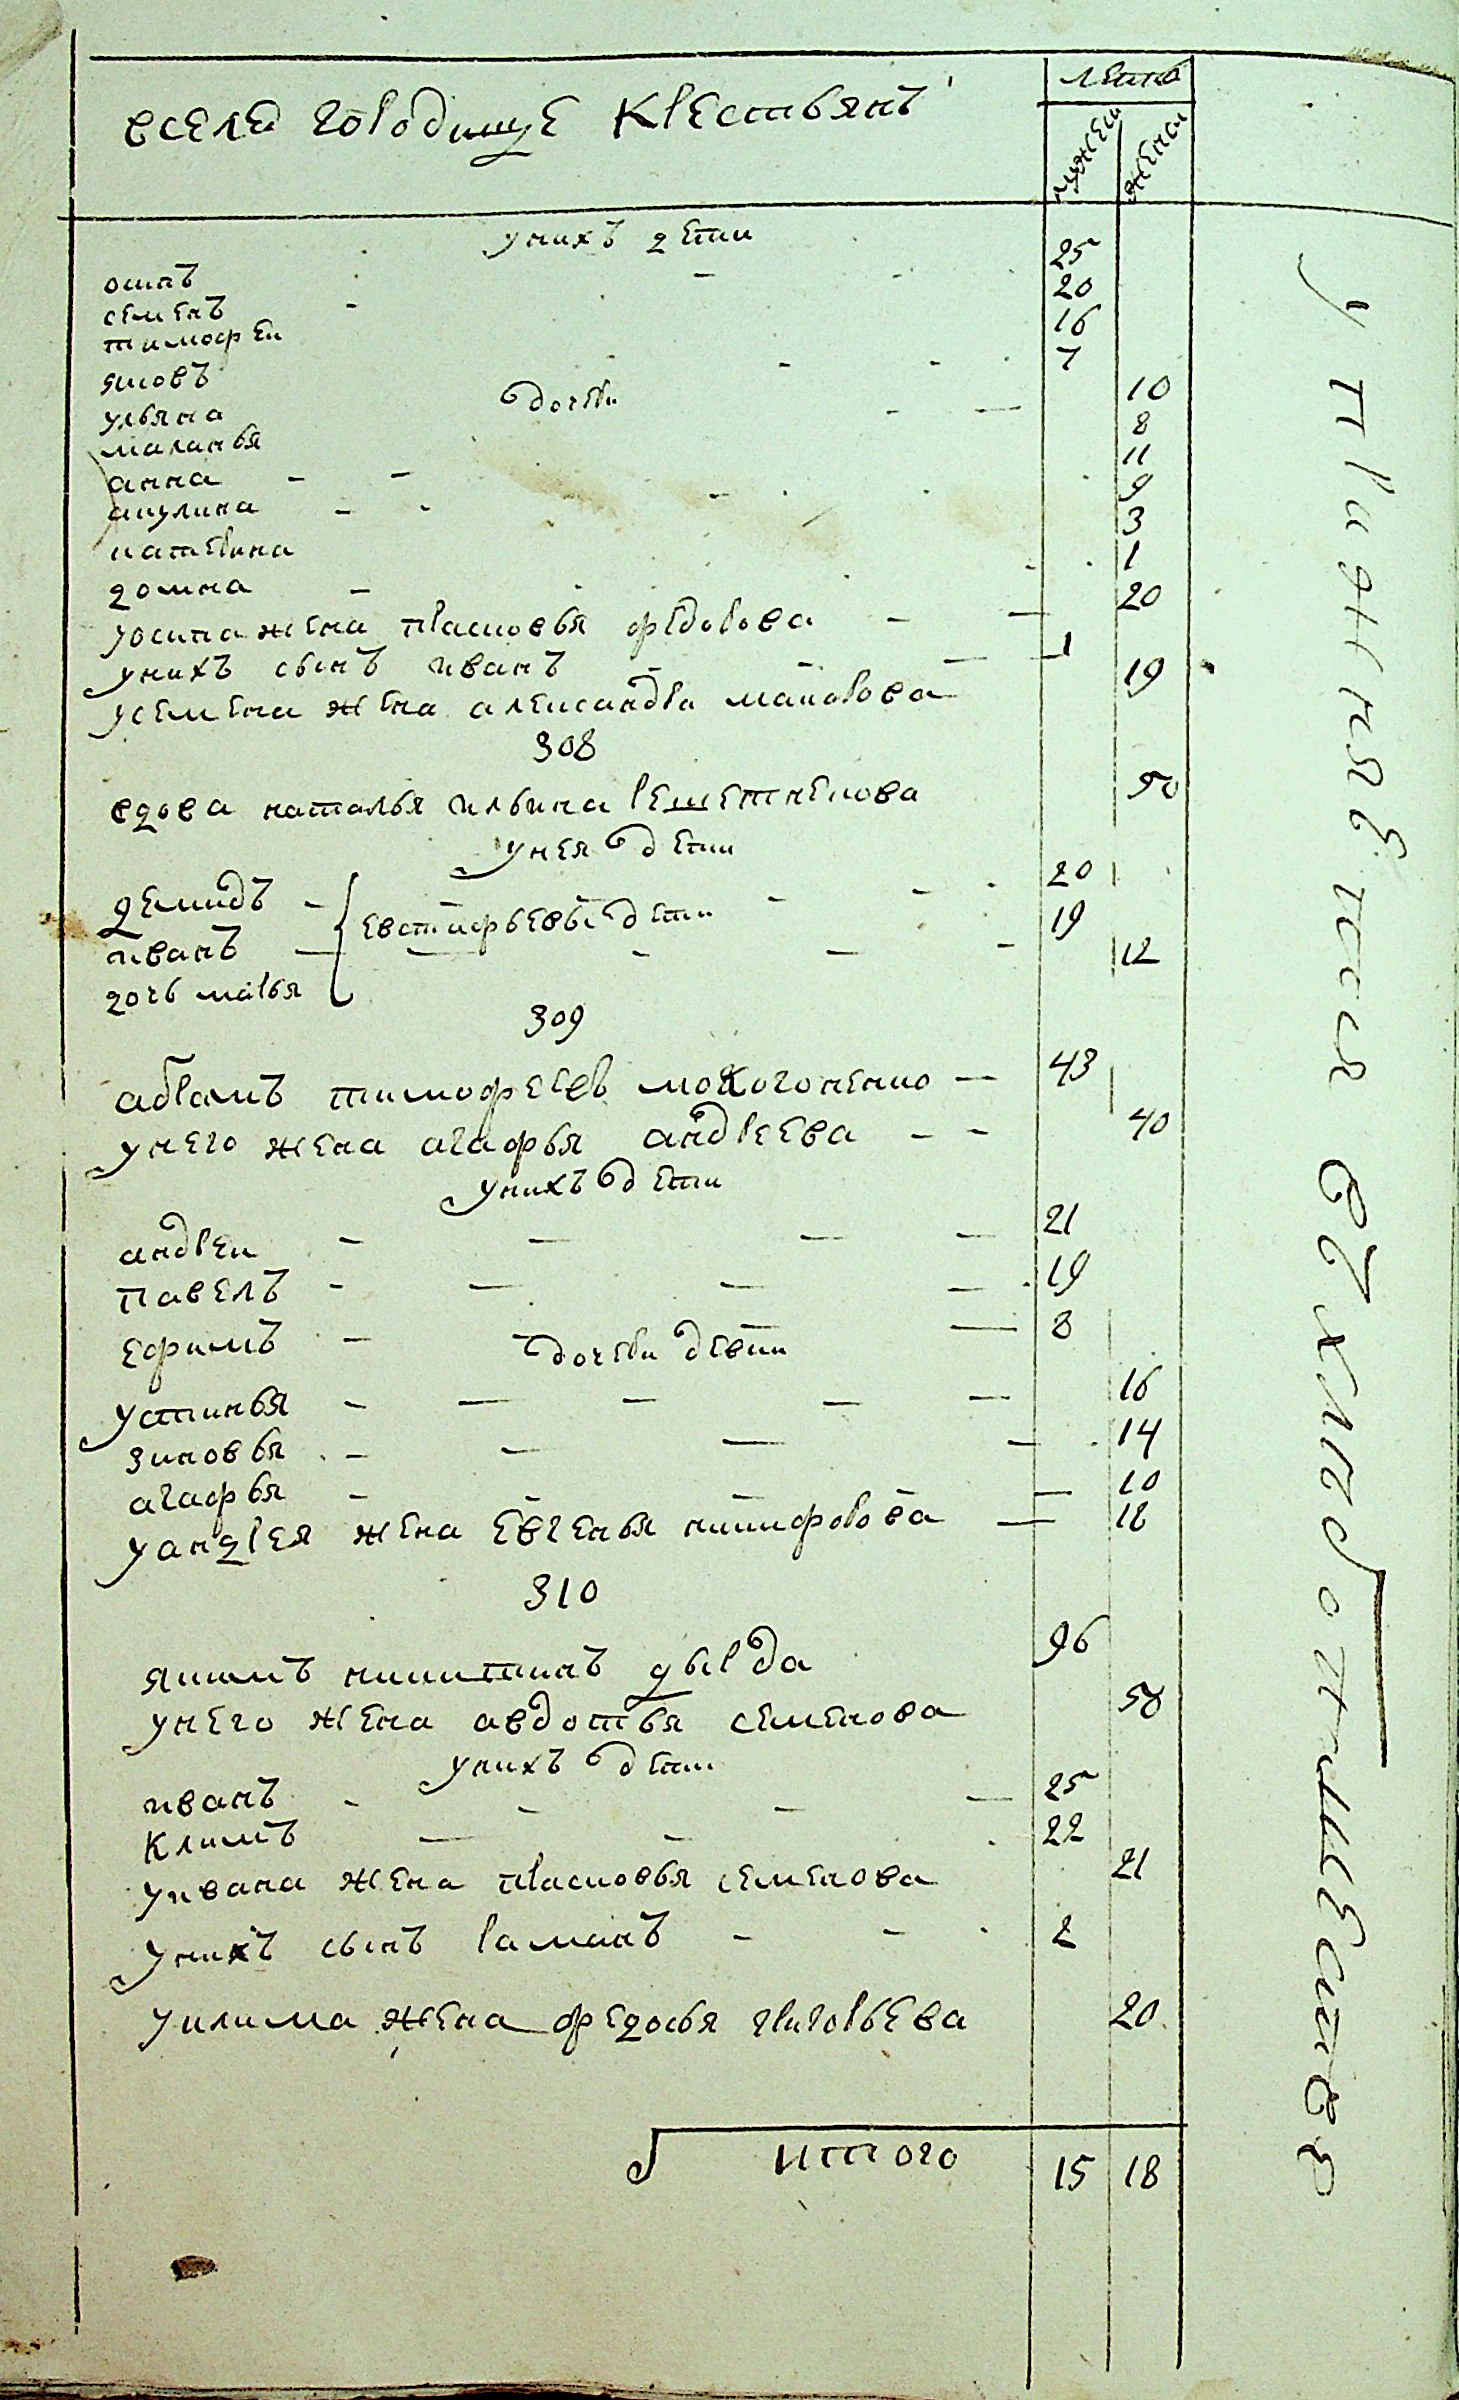 вселе городище крестьянъ
летъ
мужеск
женск
унихъ дети
осипъ 25
семенъ 20
тимофеи 16
яковъ 7
дочери
ульяна 10
маланья 8
анна 11
акулина 9
катерина 3
домна 1
уосипа жена прасковья федорова 20
унихъ сынъ иванъ 1
усемена жена александра макарова 19
308
вдова наталья ильина решетнекова 50
унея дети
демидъ 20
евстифьевы дети
иванъ 19
дочь марья 12
309
абрамъ тимофеевъ мокогоненко 43
унего жена агафья андреева 40
унихъ дети
андреи 21
павелъ 19
ефимъ 8
дочери девки
устинья 16
зиновья 14
агафья 10
уандрея жена евгенья никифорова 18
310
якимъ никитинъ дырда 96
унего жена авдотья семенова 50
унихъ дети
иванъ 25
климъ 22
уивана жена прасковья семенова 21
унихъ сынъ раманъ 2
уклима жена федосья григорьева 20
итого 15 18
упражняется вхлебопашестве